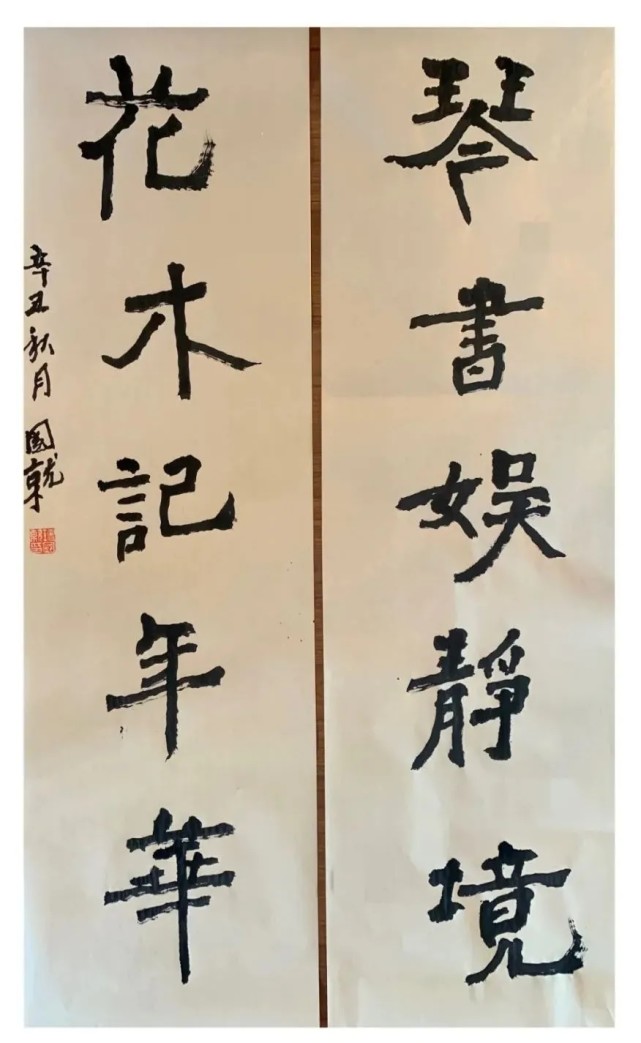 琴書娛靜境
花木記年華
辛丑秋月 國就